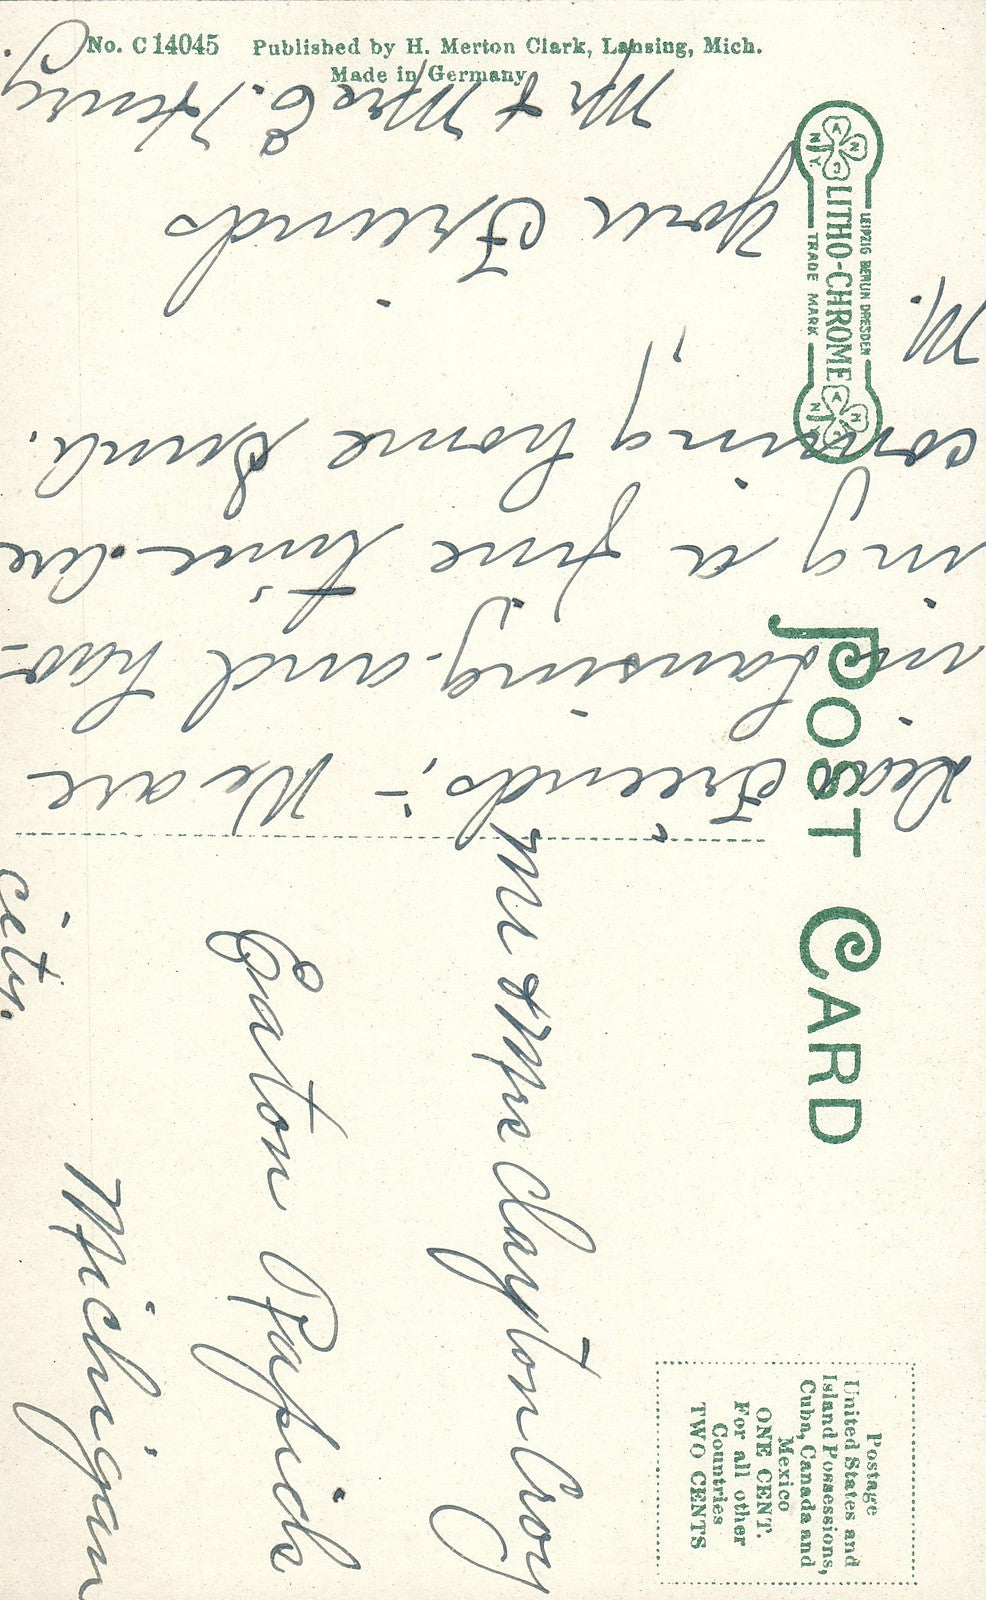 No. C 14045 Published by H. Merton Clark, Lansing, Mich.
Made in Germany
LEIPZIG BERLIN DRESDEN
LITHO-CHROME
TRADE MARK
A N C
N.Y.
A N C
N.Y.
POST CARD
Postage
United States and
Island Possessions,
Cuba, Canada and
Mexico
ONE CENT.
For all other
Countries
TWO CENTS
Dear Friends;- We are
in Lansing and hav-
ing a fine time. are
coming home Sund.
M.
Your Friends
Mr & Mrs C. Henry
Mr & Mrs Clayton Croy
Eaton Rapids
Michigan
city.